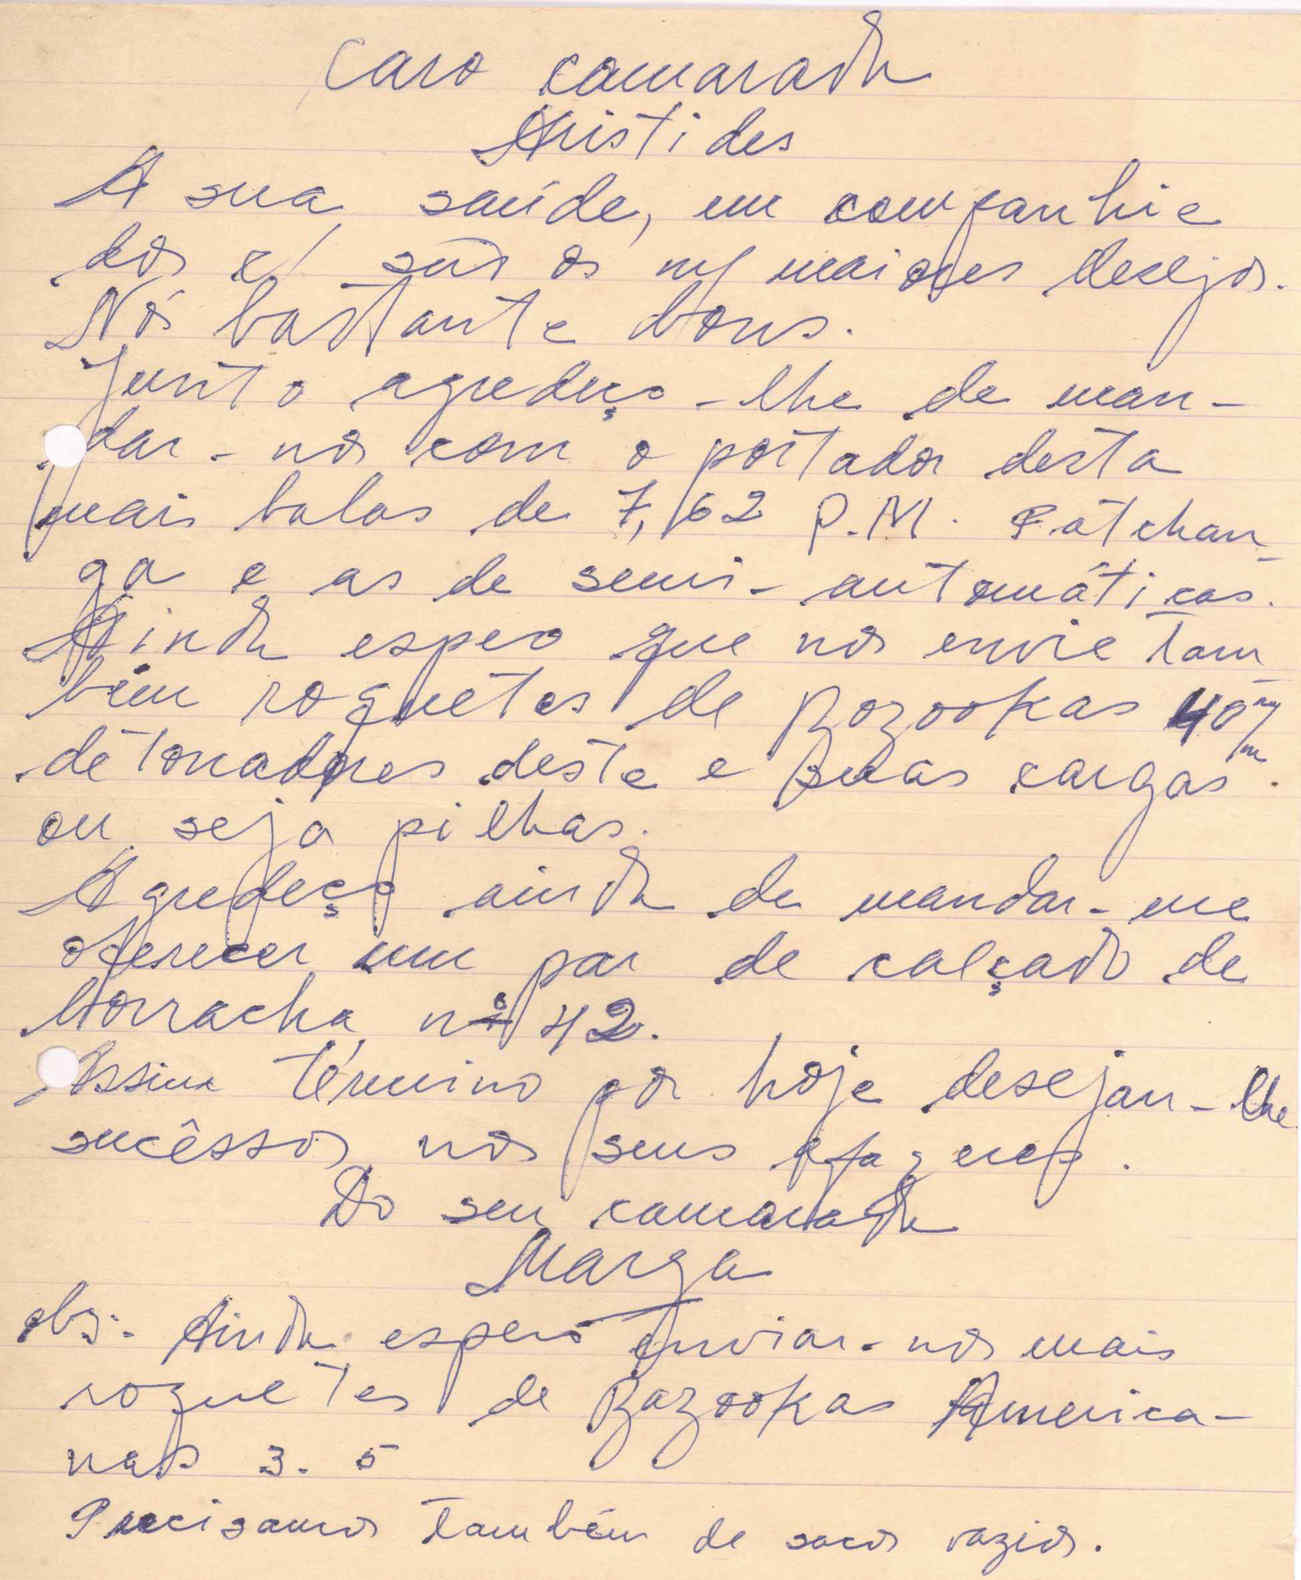 Caro camarada
Aristides
A sua saúde, em companhia
dos c/ são os m/ maiores desejos.
Nós bastante bons.
Junto agradeço-lhe de man-
dar-nos com o portador desta
mais balas de 7,62 P.M. Patchan-
ga e as de semi-automáticas.
Ainda espero que nos envie tam
bém roquetes de Bazookas 40 m/m
detonadores deste e suas cargas.
ou seja pilhas.
Agradeço ainda de mandar-me
oferecer um par de calçado de
borracha nº 42.
Assim término por hoje desejan-lhe
sucêssos nos seus afazeres.
Do seu camarada
Marga
obs:- Ainda espero enviar-nos mais
roquetes de Bazookas America-
nas 3.5
Precisamos também de sacos vazios.